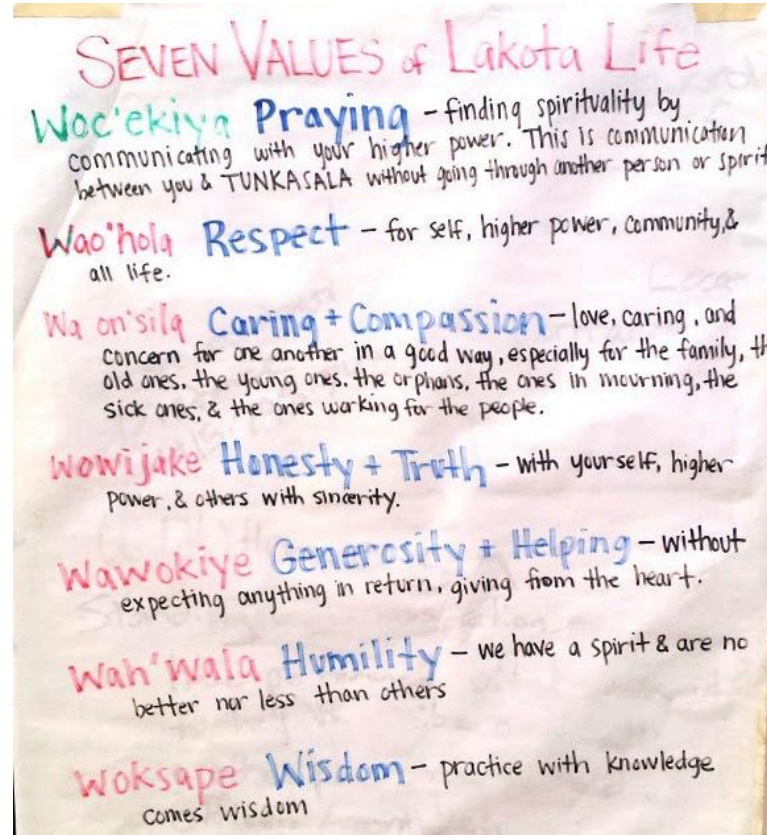 SEVEN VALUES of Lakota Life
Woc'ekiya Praying – finding spirituality by
communicating with your higher power. This is communication
between you & TUNKASALA without going through another person or spirit
Wao'hola Respect – for self, higher power, community, &
all life.
Wa on'sila Caring + Compassion – love, caring, and
concern for one another in a good way, especially for the family, th
old ones, the young ones, the orphans, the ones in mourning, the
sick ones, & the ones working for the people.
Wowijake Honesty + Truth – with yourself, higher
power, & others with sincerity.
Wawokiye Generosity + Helping – without
expecting anything in return, giving from the heart.
Wah'wala Humility – we have a spirit & are no
better nor less than others
Woksape Wisdom – practice with knowledge
comes wisdom